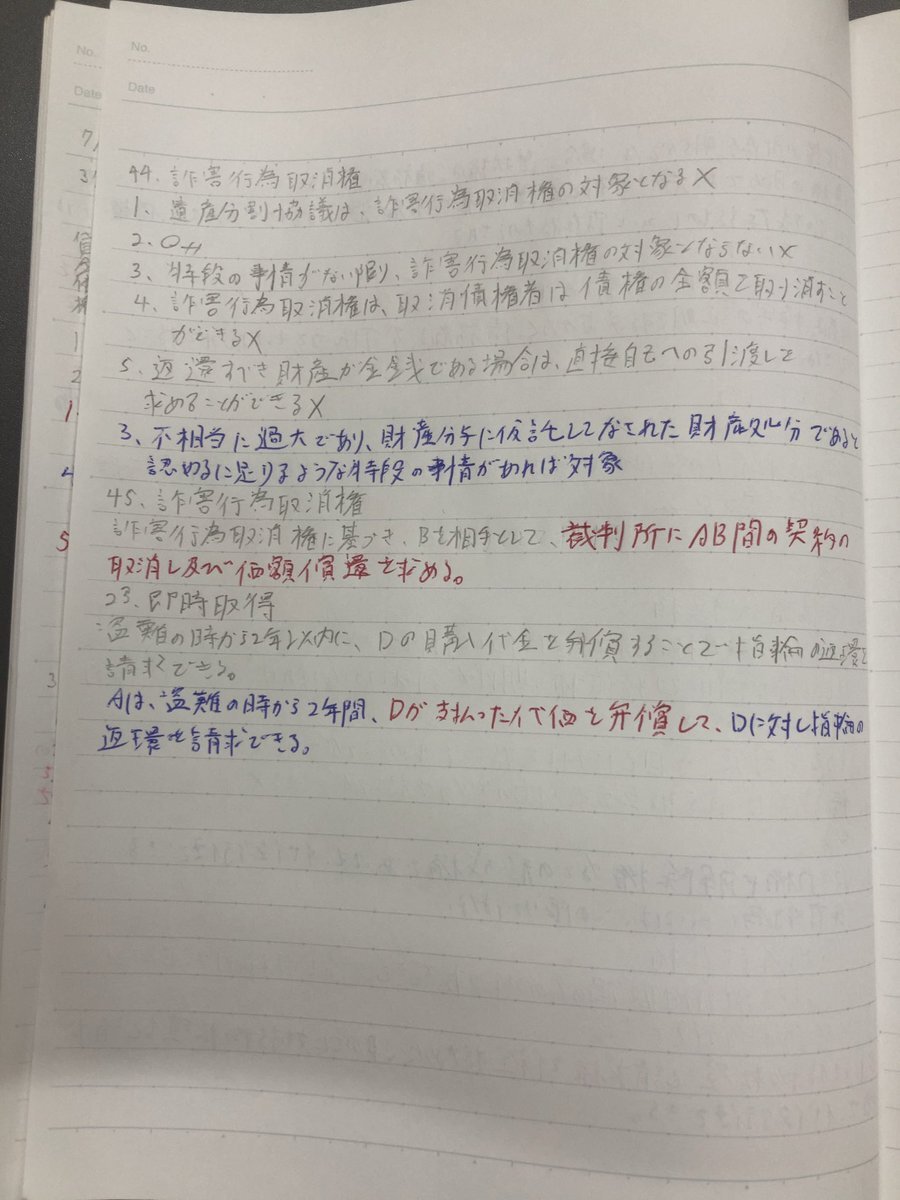 No.
Date
No.
Date
44. 詐害行為取消権
1、遺産分割協議は、詐害行為取消権の対象となる×
2.〇
3、特段の事情がない限り、詐害行為取消権の対象とならない×
4、詐害行為取消権は、取消債権者は債権の全額で取り消すこと
ができる×
5、返還すべき財産が金銭である場合は、直接自己への引渡しで
求めることができる×
3、不相当に過大であり、財産分与に仮託してなされた財産処分であると
認めるに足りるような特段の事情があれば対象
45、詐害行為取消権
詐害行為取消権に基づき、Bを相手として、裁判所にAB間の契約の
取消し及び価額償還を求める。
23、即時取得
盗難の時から2年以内に、Dの購入代金を弁償することで指輪の返還を
請求できる。
Aは、盗難の時から2年間、Dが支払った代価を弁償して、Dに対し指輪の
返還を請求できる。